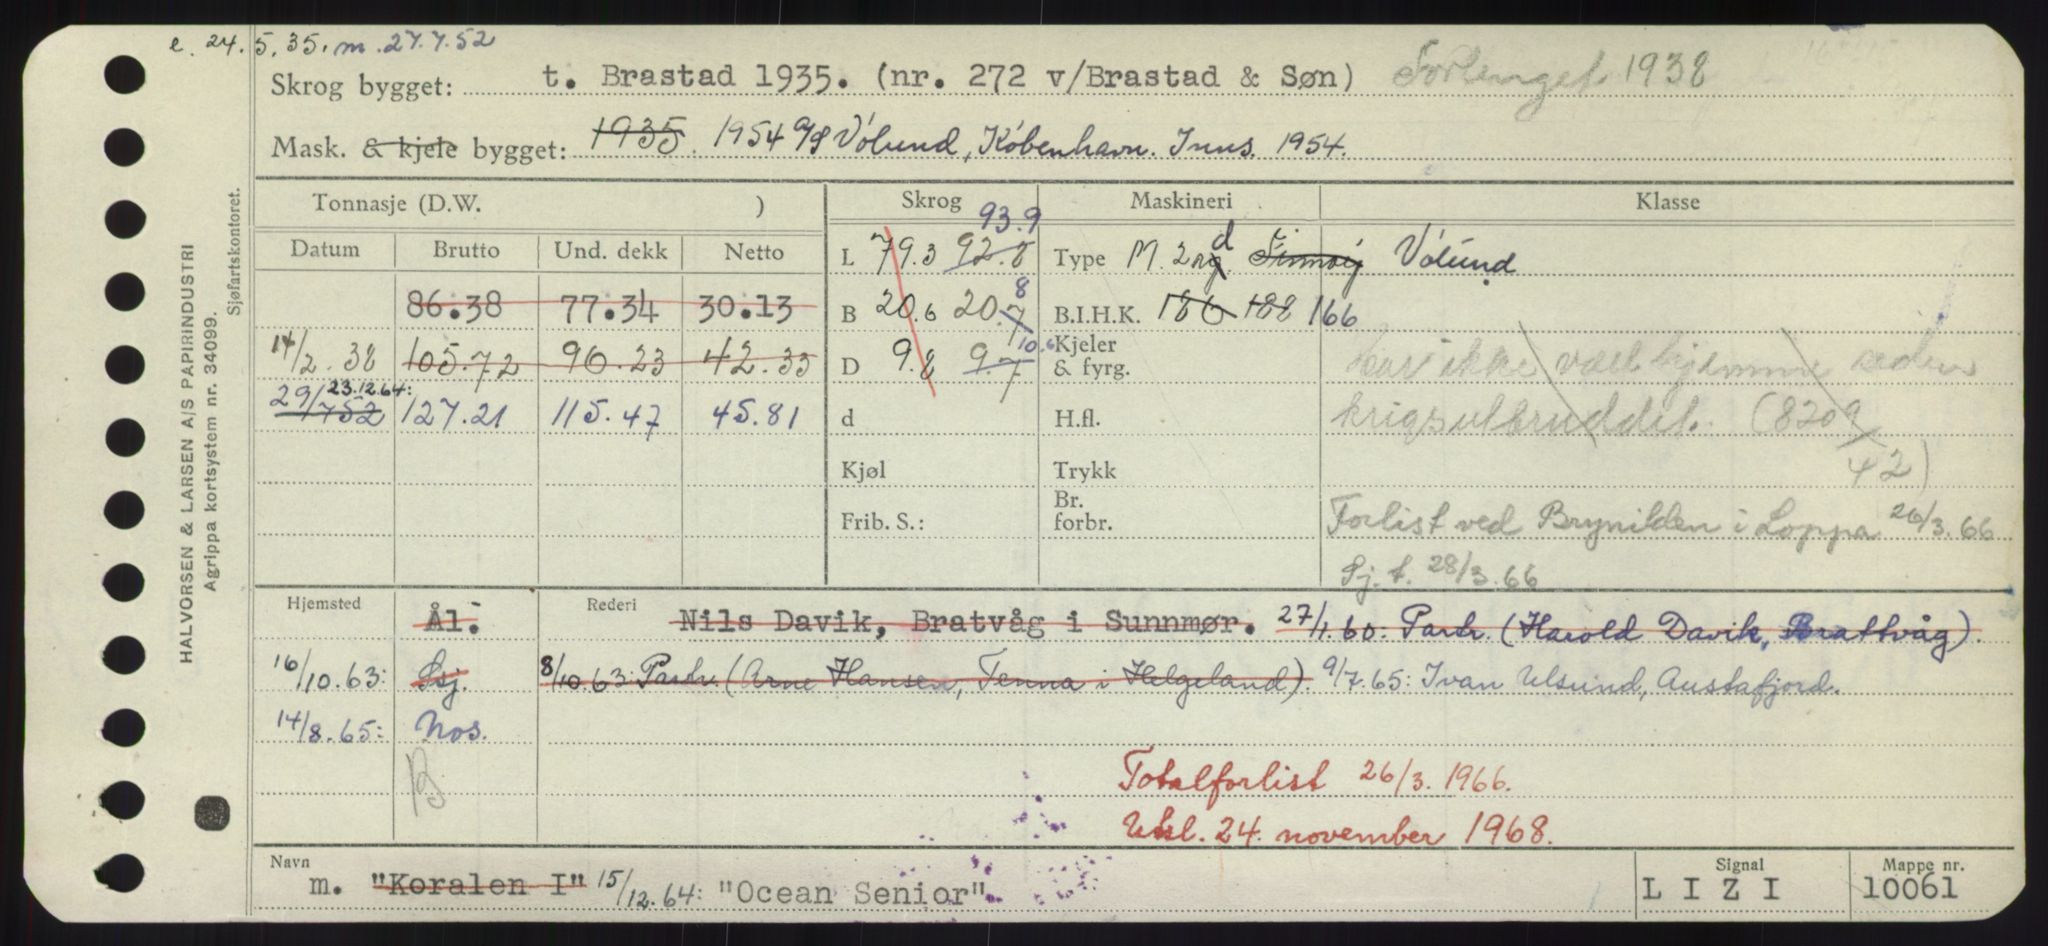 e. 24.5.35. m. 27.7.52
Skrog bygget: t. Brastad 1935. (nr. 272 v/Brastad & Søn) Forlenget 1938
Mask. & kjele bygget: 1935. 1954 A/S Vólund, København. Inns. 1954.
Tonnasje (D.W. ) Skrog Maskineri Klasse
Datum Brutto Und. dekk Netto L 79.3 92.8 93.9 Type M. 2 d Vólund
86.38 77.34 30.13 B 20.6 20.7 8 B.I.H.K. 186 188 166
14/2.38 105.72 96.23 42.33 D 9.8 9.7 10.6 Kjeler & fyrg. Har ikke vært hjemme siden
29/7 52 23.12.64: 127.21 115.47 45.81 d H.fl. krigsutbruddet. (8209/42)
Kjøl Trykk
Frib. S.: Br. forbr. Forlist ved Brynilden i Loppa 26/3.66
Sj. f. 28/3.66
Hjemsted Ål. Rederi Nils Davik, Bratvåg i Sunnmør. 27/1.60: Partr. (Harold Davik, Brattvåg).
16/10.63: Ssj. 8/10.63: Partr. (Arne Hansen, Tenna i Helgeland). 9/7.65: Ivan Ulsund, Austafjord.
14/8.65: Nos.
B
Totalforlist 26/3. 1966.
Utsl. 24. november 1968.
Navn m. "Koralen I" 15/12.64: "Ocean Senior" Signal L I Z I Mappe nr. 10061
HALVORSEN & LARSEN A/S PAPIRINDUSTRI
Agrippa kortsystem nr. 34099.
Sjøfartskontoret.